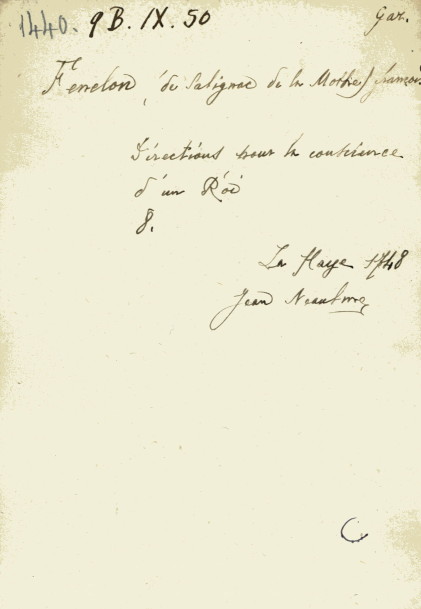 1440. 9 B. IX. 50 Gaz.
Fenelon, (de Salignac de la Mothe) françois
Directions pour la conscience
d'un Roi
8.
La Haye 1748
Jean Neaulme